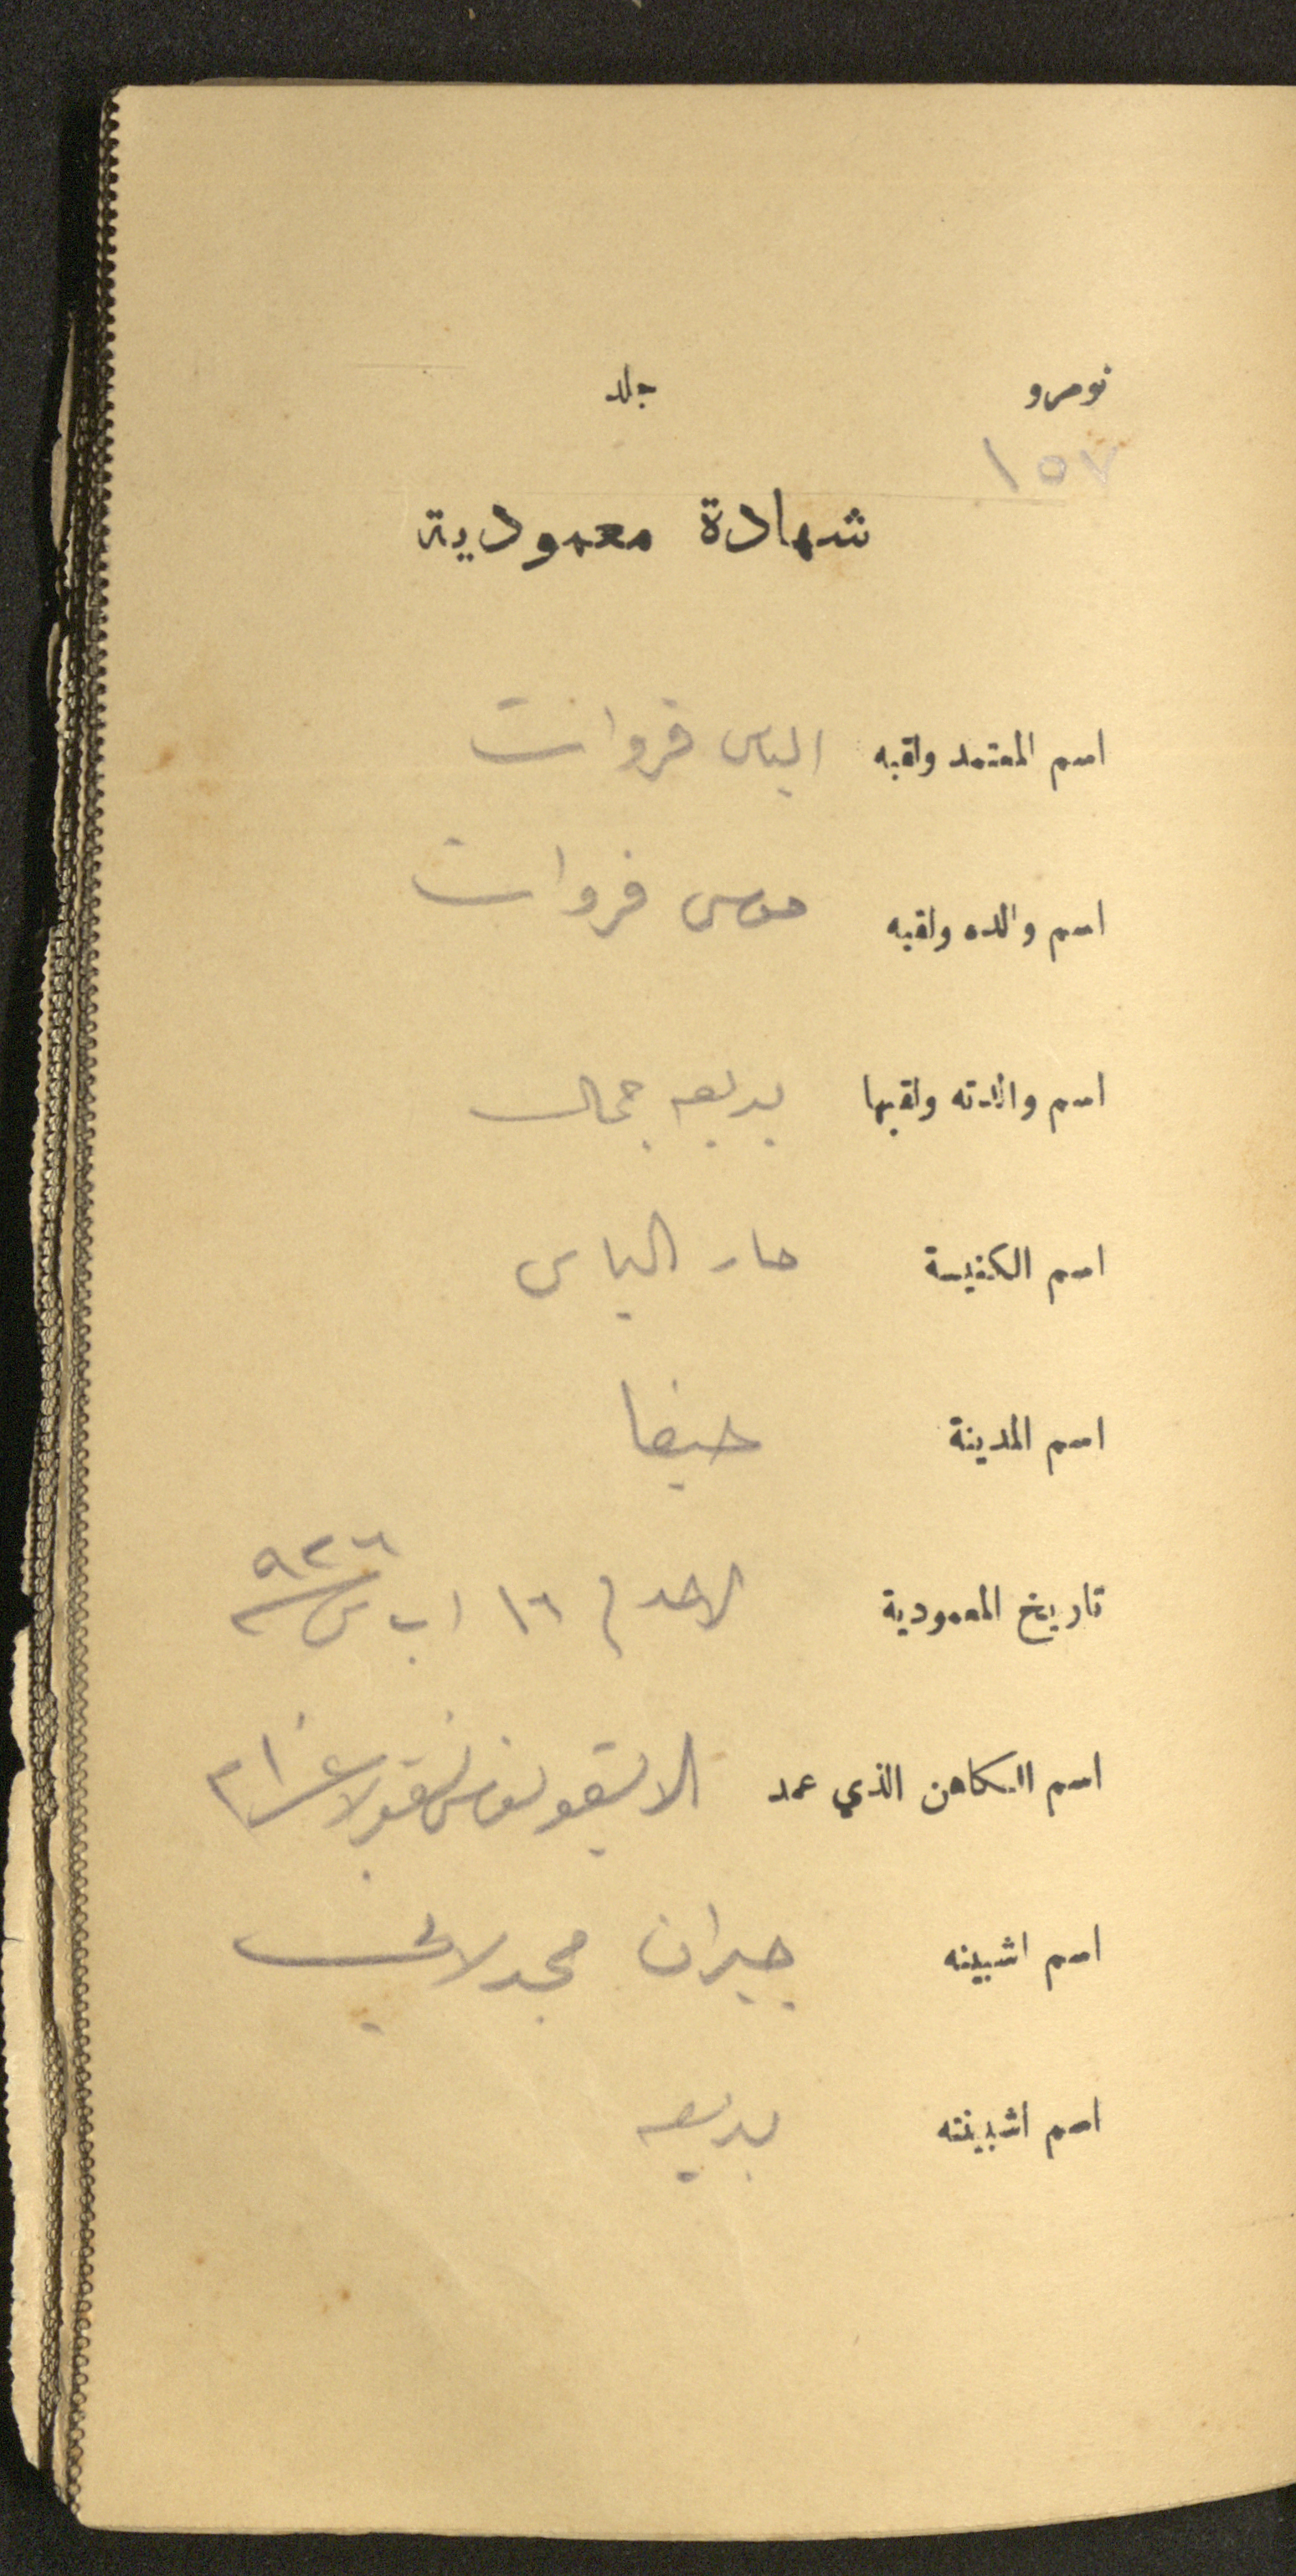 نومرو جلد
١٥٧
شهادة معمودية
اسم المعتمد ولقبه الياس قروات
اسم والده ولقبه موسى قروات
اسم والدته ولقبها بديعه جمال
اسم الكنيسة مار الياس
اسم المدينة حيفا
تاريخ المعمودية الاحد في ١٦ اب س ٩٢٦
اسم الكاهن الذي عمد الايقونوس نقولا
اسم اشبينه جبران مجدلاني
اسم اشبينته بديعه